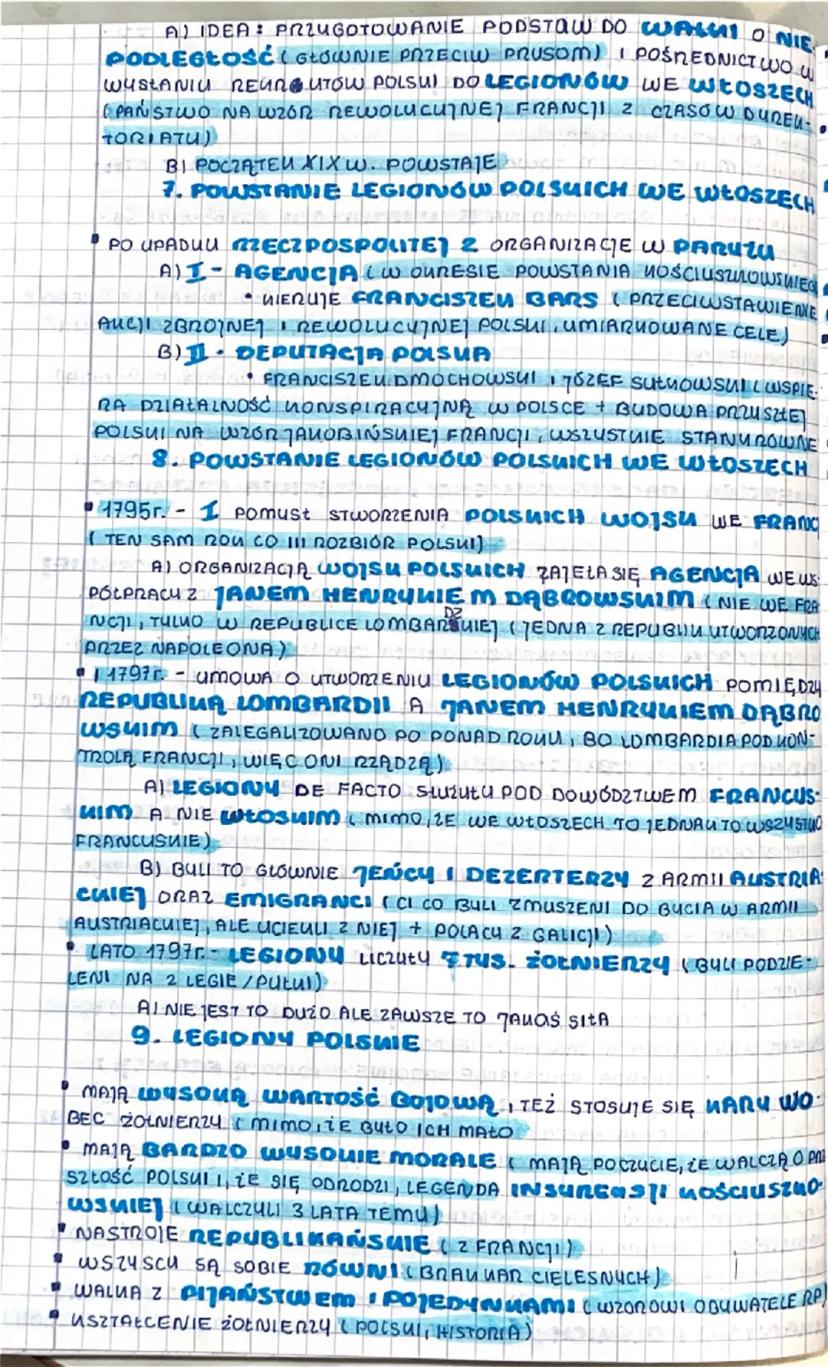 A) IDEA: PRZYGOTOWANIE PODSTAW DO WALKI O NIE
PODLEGŁOŚĆ (GŁÓWNIE PRZECIW PRUSOM) I POŚREDNICTWO W
WYSŁANIU REKRUTÓW POLSKI DO LEGIONÓW WE WŁOSZECH
(PAŃSTWO NA WZÓR REWOLUCYJNEJ FRANCJI Z CZASÓW DYREK-
TORIATU)
B) POCZĄTEK XIX W. POWSTAJE
7. POWSTANIE LEGIONÓW POLSKICH WE WŁOSZECH
▪ PO UPADKU RZECZPOSPOLITEJ 2 ORGANIZACJE W PARYŻU
A) I - AGENCJA (W OKRESIE POWSTANIA KOŚCIUSZKOWSKIEG
• KIERUJE FRANCISZEK BARS (PRZECIWSTAWIENIE
AKCJI ZBROJNEJ I REWOLUCYJNEJ POLSKI, UMIARKOWANE CELE)
B) II - DEPUTACJA POLSKA
• FRANCISZEK DMOCHOWSKI I JÓZEF SUŁKOWSKI (WSPIE-
RA DZIAŁALNOŚĆ KONSPIRACYJNĄ W POLSCE + BUDOWA PRZYSZŁEJ
POLSKI NA WZÓR JAKOBIŃSKIEJ FRANCJI, WSZYSTKIE STANY RÓWNE
8. POWSTANIE LEGIONÓW POLSKICH WE WŁOSZECH
▪ 1795r. - I POMYSŁ STWORZENIA POLSKICH WOJSK WE FRANC
(TEN SAM ROK CO III ROZBIÓR POLSKI)
A) ORGANIZACJĄ WOJSK POLSKICH ZAJĘŁA SIĘ AGENCJA WE WS-
PÓŁPRACY Z JANEM HENRYKIEM DĄBROWSKIM (NIE WE FRA
NCJI, TYLKO W REPUBLICE LOMBARDZKIEJ (JEDNA Z REPUBLIK UTWORZONYCH
PRZEZ NAPOLEONA)
▪ I 1797r. - UMOWA O UTWORZENIU LEGIONÓW POLSKICH POMIĘDZY
REPUBLIKĄ LOMBARDII A JANEM HENRYKIEM DĄBRO
WSKIM (ZALEGALIZOWANO PO PONAD ROKU, BO LOMBARDIA POD KON-
TROLĄ FRANCJI, WIĘC ONI RZĄDZĄ)
A) LEGIONY DE FACTO SŁUŻYŁY POD DOWÓDZTWEM FRANCUS-
KIM A NIE WŁOSKIM (MIMO, ŻE WE WŁOSZECH TO JEDNAK TO WSZYSTKO
FRANCUSKIE)
B) BYLI TO GŁÓWNIE JEŃCY I DEZERTERZY Z ARMII AUSTRIA-
CKIEJ ORAZ EMIGRANCI (CI CO BYLI ZMUSZENI DO BYCIA W ARMII
AUSTRIACKIEJ, ALE UCIEKLI Z NIEJ + POLACY Z GALICJI)
▪ LATO 1797r. - LEGIONY LICZYŁY 7 TYS. ŻOŁNIERZY (BYLI PODZIE-
LENI NA 2 LEGIE/PUŁKI)
A) NIE JEST TO DUŻO ALE ZAWSZE TO JAKAŚ SIŁA
9. LEGIONY POLSKIE
▪ MAJĄ WYSOKĄ WARTOŚĆ BOJOWĄ, TEŻ STOSUJE SIĘ KARY WO-
BEC ŻOŁNIERZY (MIMO, ŻE BYŁO ICH MAŁO
▪ MAJĄ BARDZO WYSOKIE MORALE (MAJĄ POCZUCIE, ŻE WALCZĄ O PRZ
SZŁOŚĆ POLSKI I, ŻE SIĘ ODRODZI, LEGENDA INSUREKCJI KOŚCIUSZKO-
WSKIEJ (WALCZYLI 3 LATA TEMU)
▪ NASTROJE REPUBLIKAŃSKIE (Z FRANCJI)
▪ WSZYSCY SĄ SOBIE RÓWNI (BRAK KAR CIELESNYCH)
▪ WALKA Z PIJAŃSTWEM I POJEDYNKAMI (WZOROWI OBYWATELE RP)
▪ KSZTAŁCENIE ŻOŁNIERZY (POLSKI, HISTORIA)